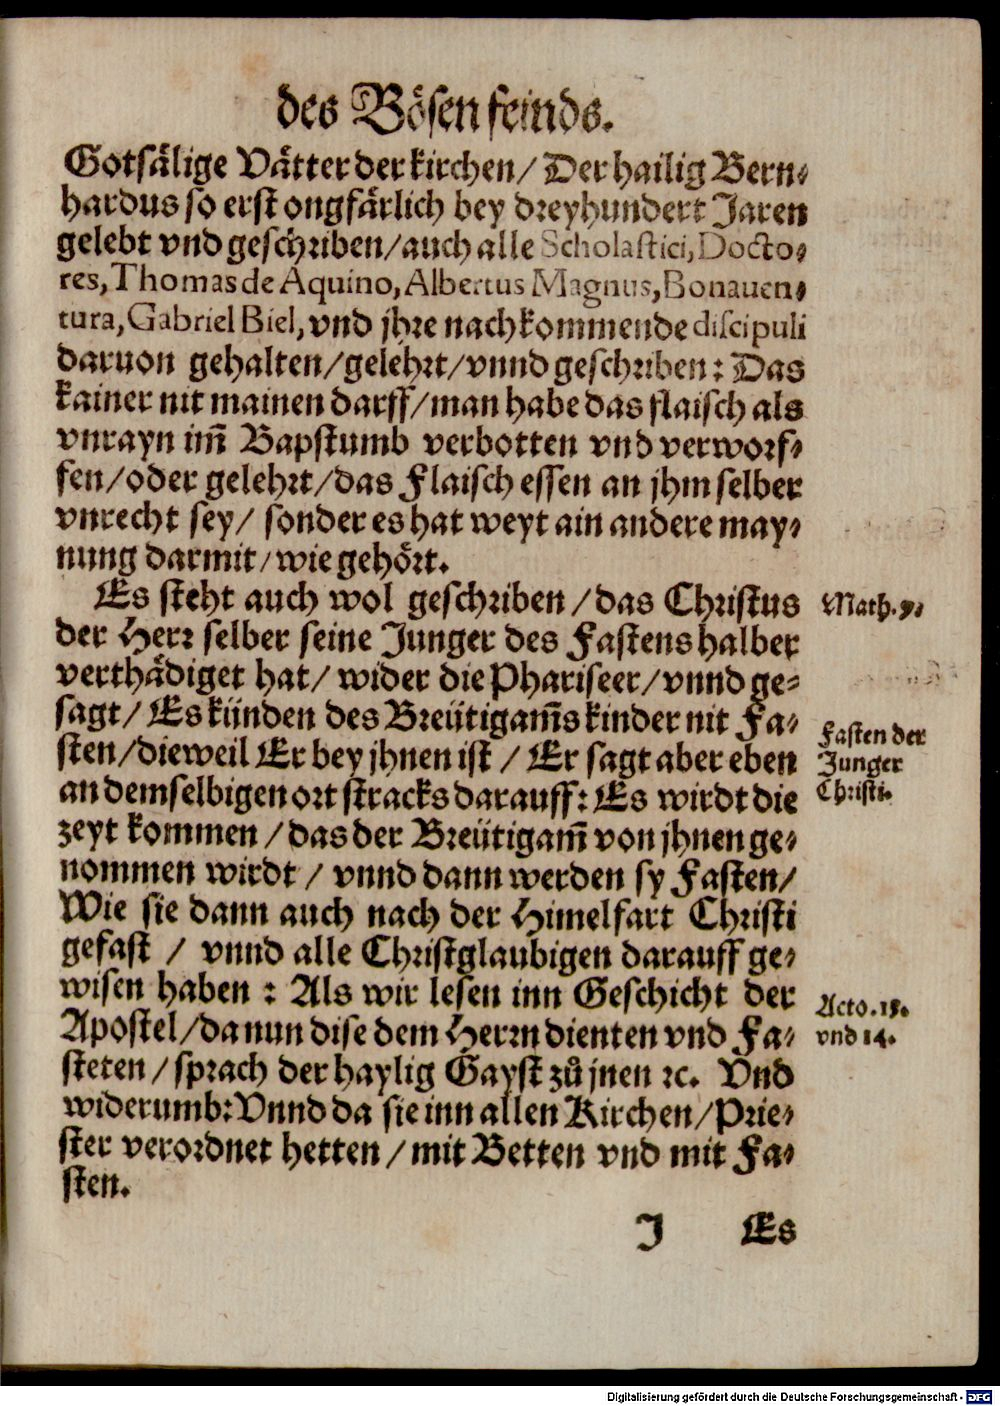 des Bösen feinds.
Gotsälige Vätter der kirchen/ Der hailig Bern⸗
hardus so erst ongfärlich bey dreyhundert Jaren
gelebt vnd geschriben/auch alle Scholastici, Docto⸗
res, Thomas de Aquino, Albertus Magnus, Bonauen⸗
tura, Gabriel Biel, vnd jhre nachkommende discipuli
daruon gehalten/gelehrt/vnnd geschriben: Das
kainer nit mainen darff/man habe das flaisch als
vnrayn im̃ Bapstumb verbotten vnd verworf⸗
fen/oder gelehrt/das Flaisch essen an jhm selber
vnrecht sey/ sonder es hat weyt ain andere may⸗
nung darmit/wie gehört.
Es steht auch wol geschriben/das Christus
der Herr selber seine Junger des Fastens halber
verthädiget hat/ wider die Phariseer/vnnd ge⸗
sagt/ Es künden des Breütigam̃s kinder nit Fa⸗
sten/dieweil Er bey jhnen ist / Er sagt aber eben
an demselbigen ort stracks darauff: Es wirdt die
zeyt kommen /das der Breütigam̃ von jhnen ge⸗
nommen wirdt / vnnd dann werden sy Fasten/
Wie sie dann auch nach der Himelfart Christi
gefast / vnnd alle Christglaubigen darauff ge⸗
wisen haben : Als wir lesen inn Geschicht der
Apostel/da nun dise dem Herrn dienten vnd Fa⸗
steten /sprach der haylig Gayst zů jnen ꝛc. Vnd
widerumb: Vnnd da sie inn allen Kirchen/Prie⸗
ster verordnet hetten /mit Betten vnd mit Fa⸗
sten.
Math. 9.
Fasten der
Junger
Christi.
Acto. 13.
vnd 14.
J Es
Digitalisierung gefördert durch die Deutsche Forschungsgemeinschaft - DFG